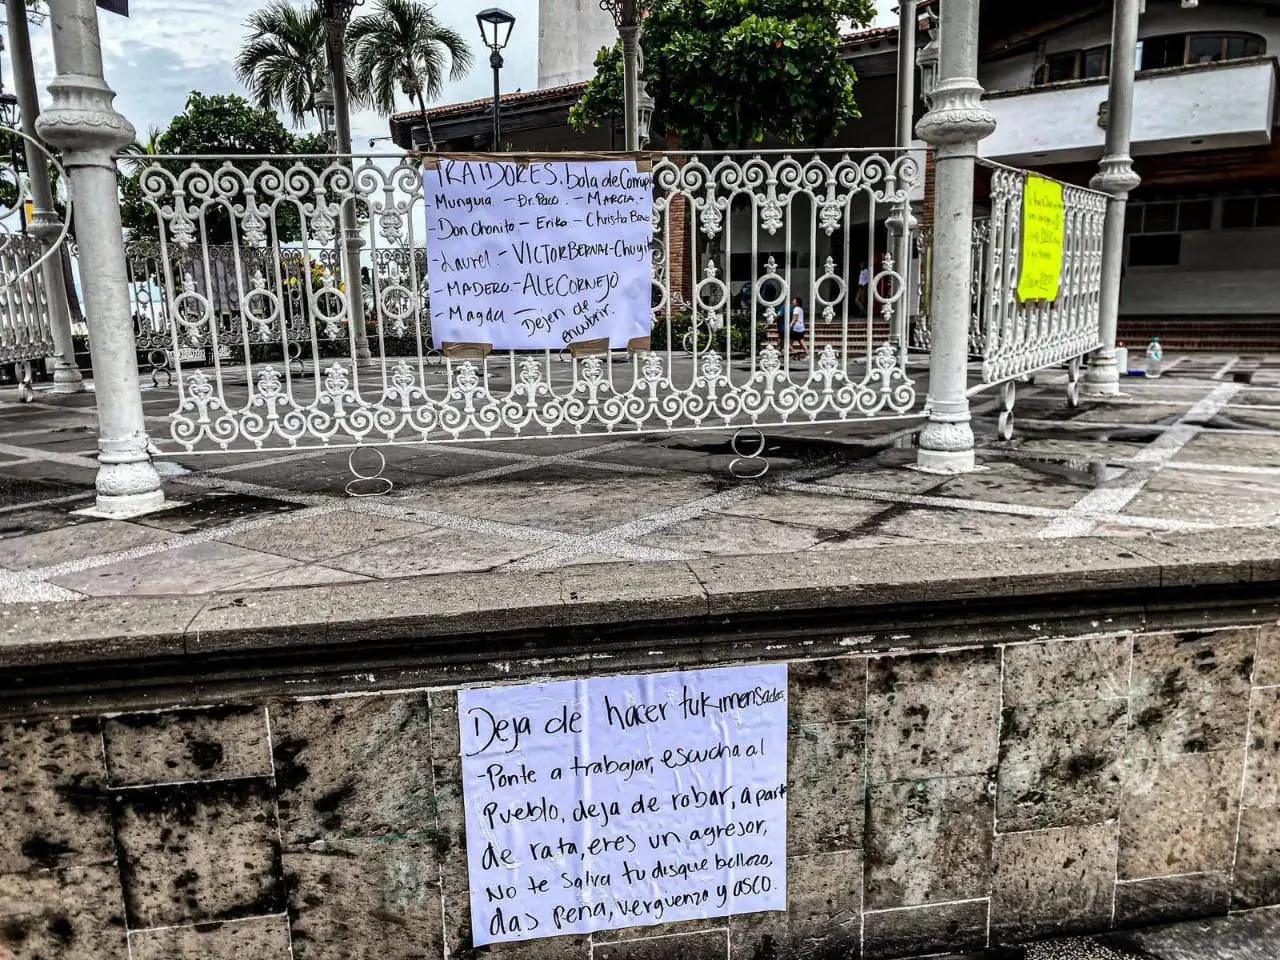 TRAIDORES. bola de Corrup
Munguia - Dr. Paco. - MARCIA. -
- Don Chonito - Erika - Christa Bravo
- Laurel. - VICTOR BERNAL - Chuyit
- MADERO. - ALE CORNEJO
- Magda - Dejen de
encubrir.
Deja de hacer tukimensadas,
- Ponte a trabajar, escucha al
Pueblo, deja de robar, a parte
de rata, eres un agresor,
No te salva tu disque belleza,
das pena, vergüenza y asco.